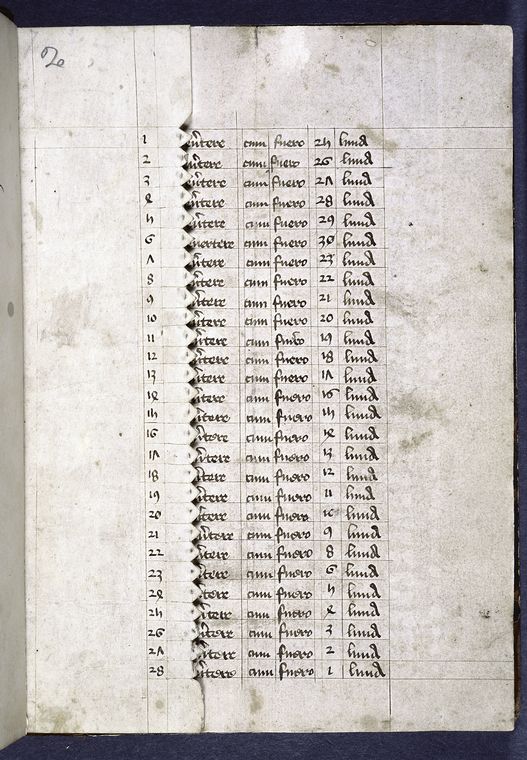 20
1 u'tere cum fuero 25 luna
2 u'tere cum fuero 26 luna
3 u'tere cum fuero 27 luna
4 u'tere cum fuero 28 luna
5 u'tere cum fuero 29 luna
6 uertere cum fuero 30 luna
7 u'tere cum fuero 23 luna
8 u'tere cum fuero 22 luna
9 u'tere cum fuero 21 luna
10 u'tere cum fuero 20 luna
11 u'tere cum fuero 19 luna
12 u'tere cum fuero 18 luna
13 u'tere cum fuero 17 luna
14 u'tere cum fuero 16 luna
15 u'tere cum fuero 15 luna
16 u'tere cum fuero 14 luna
17 u'tere cum fuero 13 luna
18 u'tere cum fuero 12 luna
19 u'tere cum fuero 11 luna
20 u'tere cum fuero 10 luna
21 u'tere cum fuero 9 luna
22 u'tere cum fuero 8 luna
23 u'tere cum fuero 6 luna
24 u'tere cum fuero 5 luna
25 u'tere cum fuero 4 luna
26 u'tere cum fuero 3 luna
27 u'tere cum fuero 2 luna
28 u'tere cum fuero 1 luna